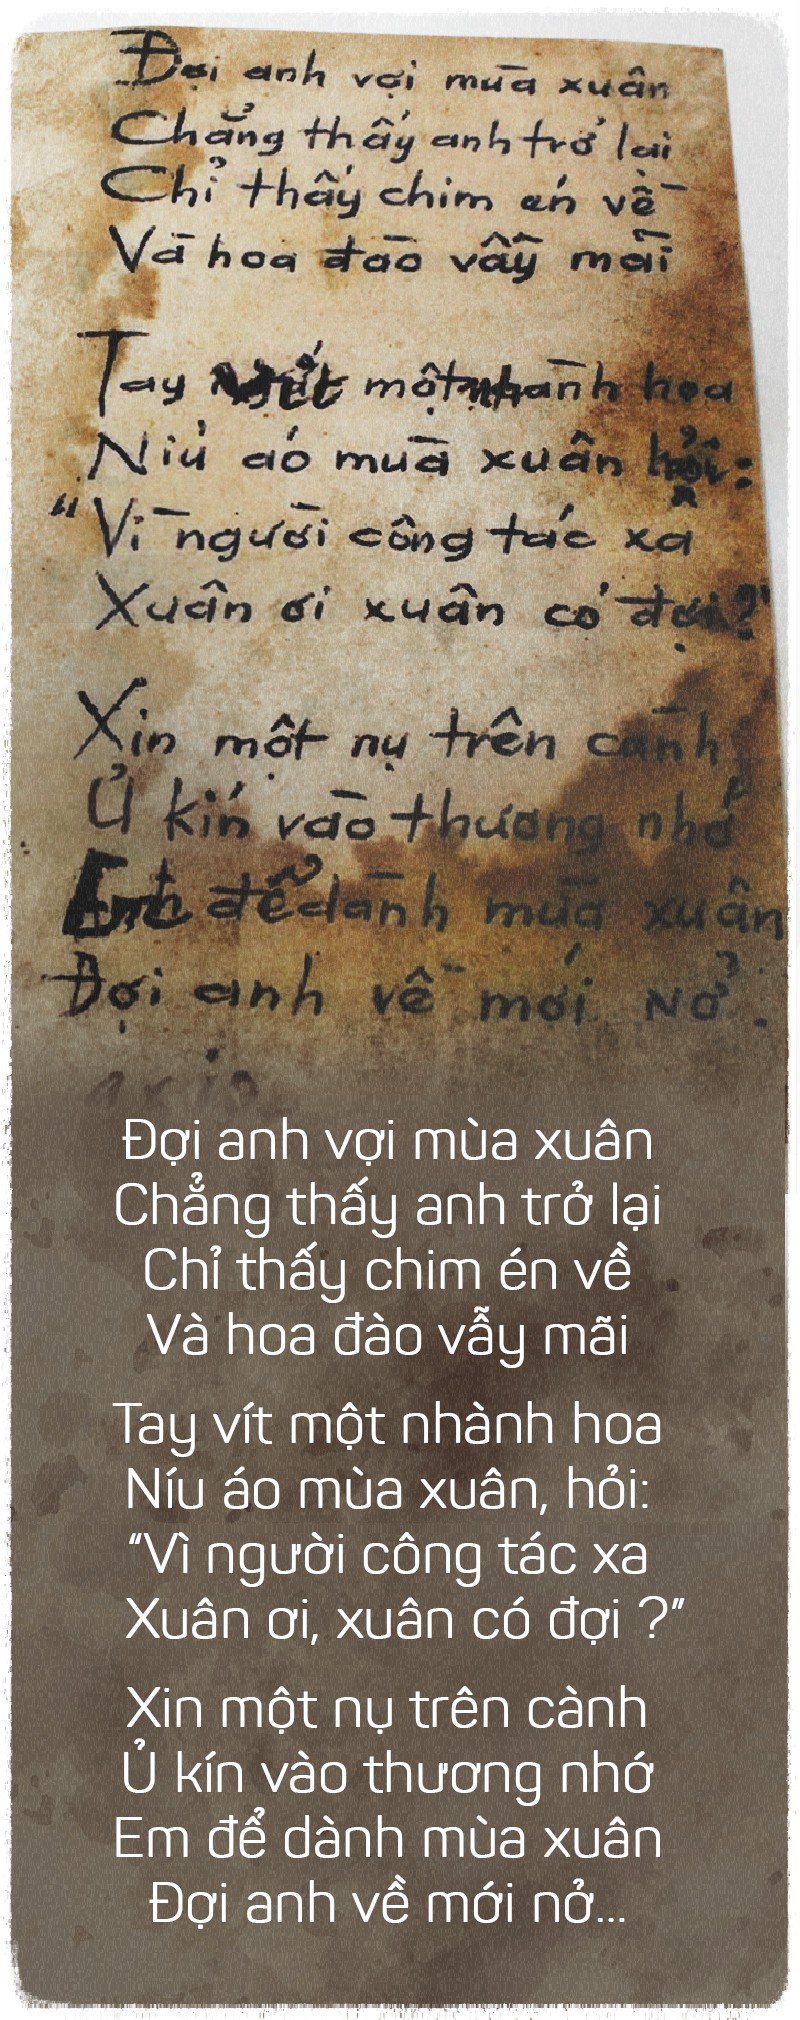 Đợi anh vợi mùa xuân
Chẳng thấy anh trở lại
Chỉ thấy chim én về
Và hoa đào vẫy mãi
Tay vít một nhành hoa
Níu áo mùa xuân hỏi:
"Vì người công tác xa
Xuân ơi xuân có đợi?"
Xin một nụ trên cành
Ủ kín vào thương nhớ
Em để dành mùa xuân
Đợi anh về mới nở.
Đợi anh vợi mùa xuân
Chẳng thấy anh trở lại
Chỉ thấy chim én về
Và hoa đào vẫy mãi
Tay vít một nhành hoa
Níu áo mùa xuân, hỏi:
“Vì người công tác xa
Xuân ơi, xuân có đợi ?”
Xin một nụ trên cành
Ủ kín vào thương nhớ
Em để dành mùa xuân
Đợi anh về mới nở...